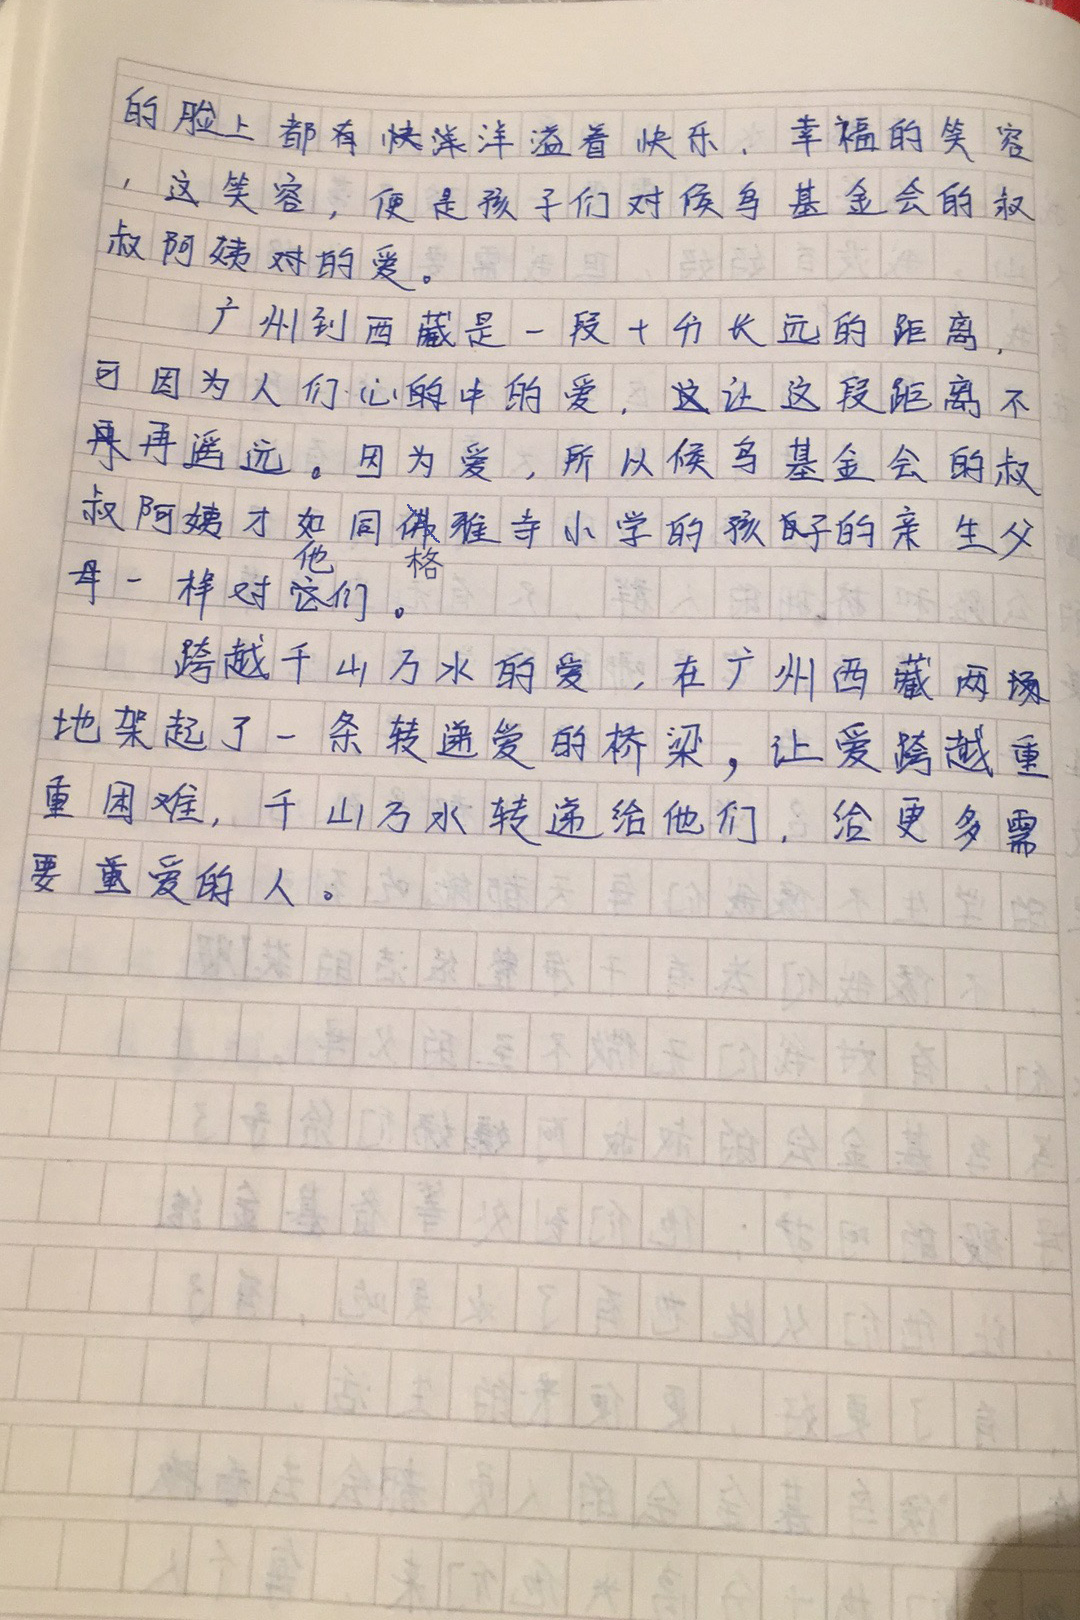 的脸上都有快洋洋溢着快乐、幸福的笑容
，这笑容，便是孩子们对候鸟基金会的叔
叔阿姨对的爱。
广州到西藏是一段十分长远的距离，
可因为人们心的中的爱，这让这段距离不
再再遥远。因为爱，所以候鸟基金会的叔
叔阿姨才如同雅寺小学的孩子的亲生父
他 格
母一样对它们。
跨越千山万水的爱，在广州西藏两场
地架起了一条转递爱的桥梁，让爱跨越重
重困难，千山万水转递给他们，给更多需
要重爱的人。